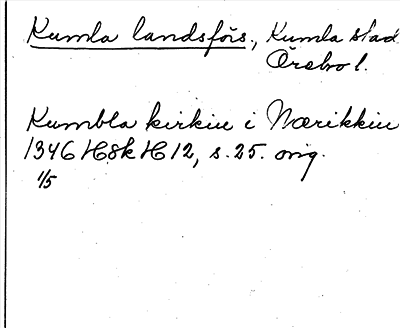 Kumla landsförs., Kumla stad
Örebro l.
Kumbla kirkiu i Nærikkiu
1346 HSkH 12, s. 25. orig.
1/5